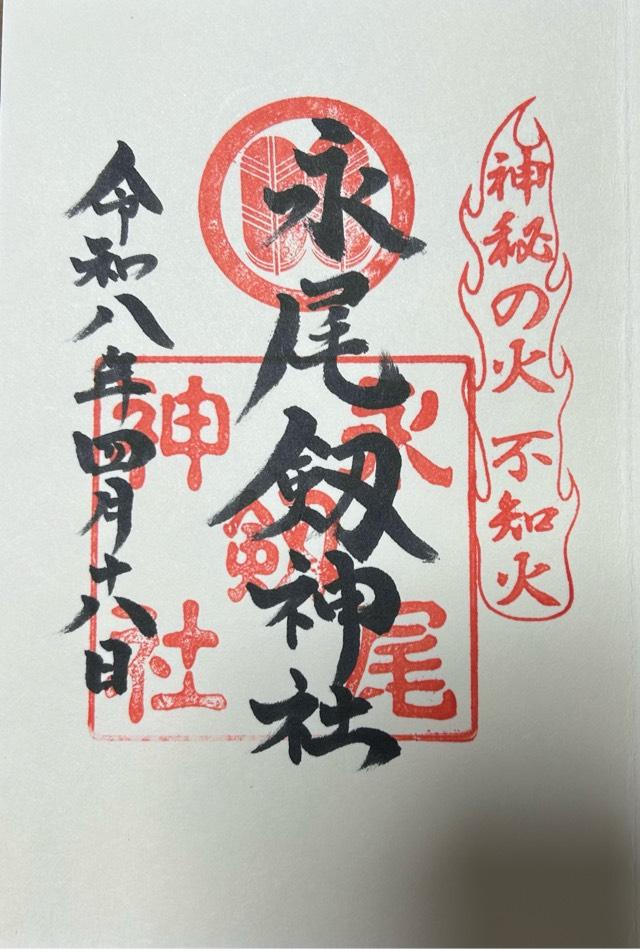 神秘の火 不知火
永尾剱神社
永尾剱神社
令和八年四月十八日